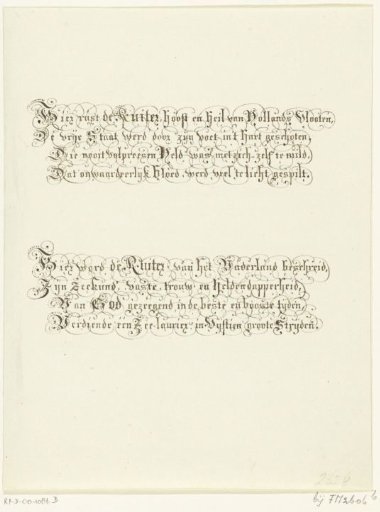 Hier rust de Ruiter, hooft en heil van Hollands Vlooten,
De vrije Staat werd door zijn voet in 't hart geschoten,
Die nooit volpreesen Held was met zich zelf te mild,
Dat onwaardeerlyk bloed werd veel te licht gespilt.
Hier word de Ruiter van het Vaderland beschreid,
Zijn Zeekunde vaste trouw en Heldendapperheid,
Van God gezegend in de beste en booste tyden,
Verdiende een Zee-laurier in Vyftien groote Stryden.
RP-P-OB-1081-D
bij FM 2606 b